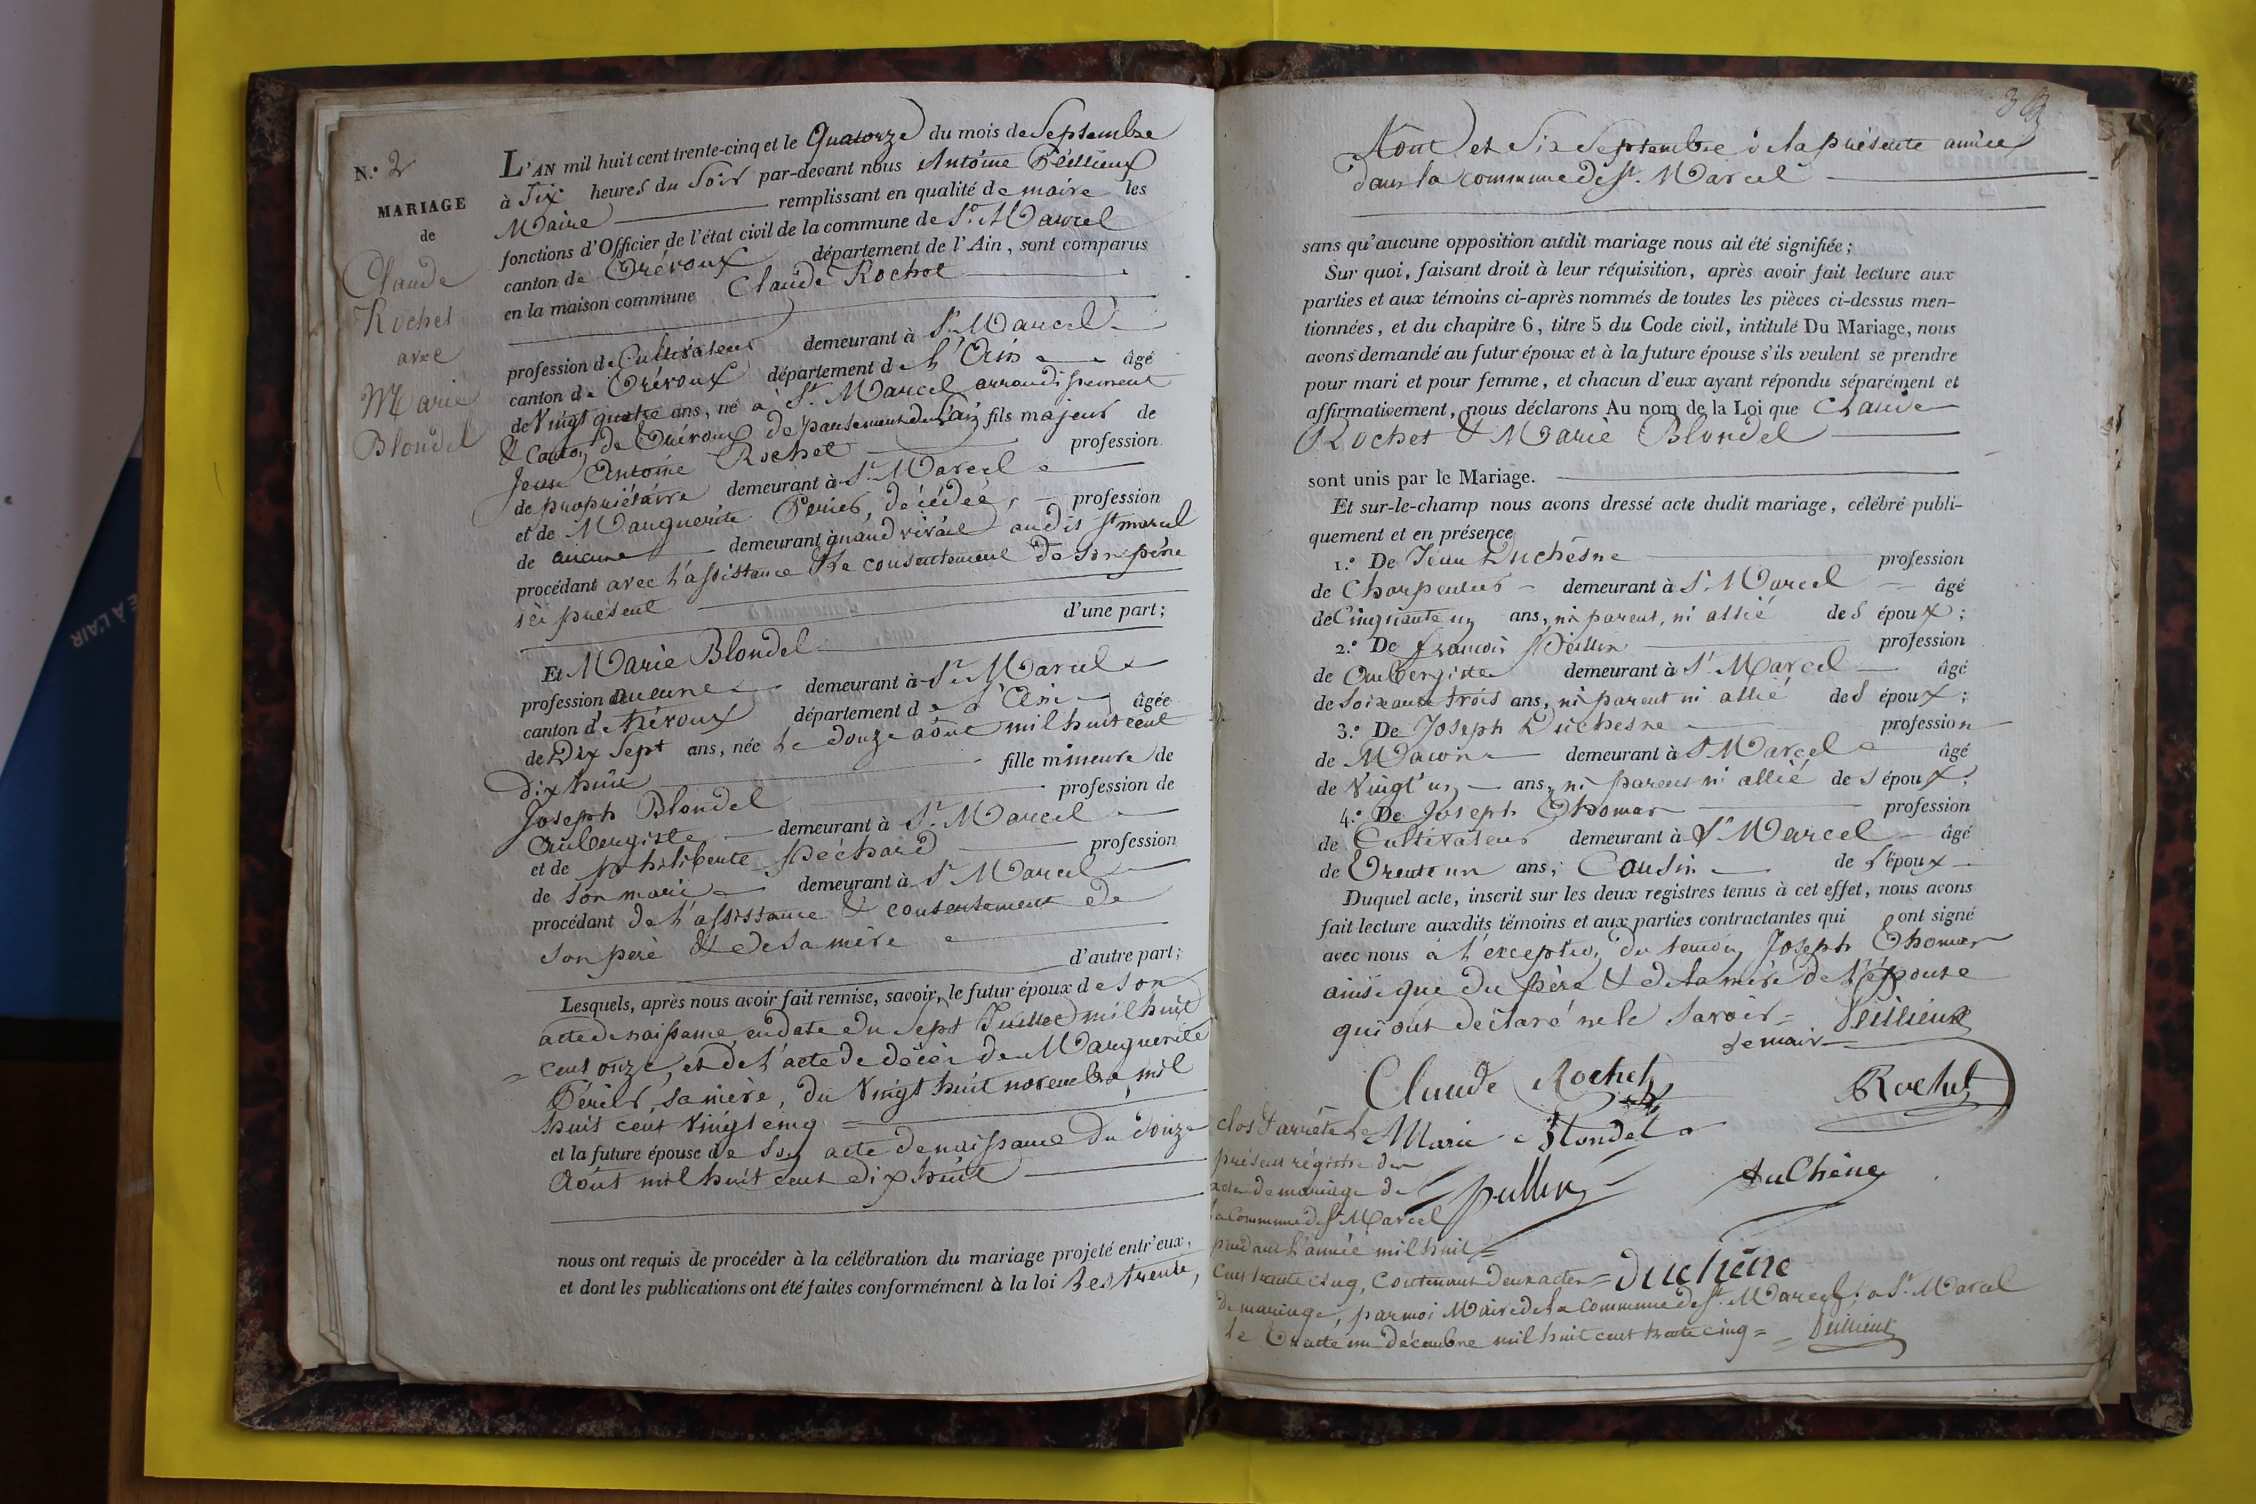 N.º 2
MARIAGE
de
Claude
Rochet
avec
Marie
Blondel
L'AN mil huit cent trente-cinq et le Quatorze du mois de Septembre
à Six heures du Soir par-devant nous Antoine
Maire remplissant en qualité de maire les
fonctions d'Officier de l'état civil de la commune de St. Marcel
canton de Trévoux département de l'Ain, sont comparus
en la maison commune Claude Rochet
profession de Cultivateur demeurant à St. Marcel
canton de Trévoux département de l'Ain âgé
de Vingt quatre ans, né à St. Marcel arrondissement
& Canton de Trévoux département de l'ain fils majeur de
Jean Antoine Rochet profession
de propriétaire demeurant à St. Marcel
et de Marguerite Périer, décédée, profession
de aucune demeurant quand vivait audit St marcel
procédant avec l'assistance & le consentement de son père
ici présent
d'une part;
Et Marie Blondel
profession d'aucune demeurant à St. Marcel
canton de trévoux département de l'Ain âgée
de Dix Sept ans, née le douze août mil huit cent
dix huit fille mineure de
Joseph Blondel profession de
Aubergiste demeurant à St. Marcel
et de philiberte Péchard profession
de son mari demeurant à St. Marcel
procédant de l'assistance & consentement de
son père & de sa mère
d'autre part;
Lesquels, après nous avoir fait remise, savoir, le futur époux de son
acte de naissance, en date du Sept Juillet mil huit
= cent onze, et de l'acte de décès de Marguerite
Périer, sa mère, du Vingt huit novembre, mil
huit cent Vingt cinq
et la future épouse de son acte de naissance du douze
Août mil huit cent dix huit
nous ont requis de procéder à la célébration du mariage projeté entr'eux,
et dont les publications ont été faites conformément à la loi les trente,
Aout et Six Septembre de la présente année
dans la commune de St. Marcel
sans qu'aucune opposition audit mariage nous ait été signifiée;
Sur quoi, faisant droit à leur réquisition, après avoir fait lecture aux
parties et aux témoins ci-après nommés de toutes les pièces ci-dessus men-
tionnées, et du chapitre 6, titre 5 du Code civil, intitulé Du Mariage, nous
avons demandé au futur époux et à la future épouse s'ils veulent se prendre
pour mari et pour femme, et chacun d'eux ayant répondu séparément et
affirmativement, nous déclarons Au nom de la Loi que Claude
Rochet & Marie Blondel
sont unis par le Mariage.
Et sur-le-champ nous avons dressé acte dudit mariage, célébré publi-
quement et en présence
1.º De Jean Duchesne profession
de Charpentier demeurant à St Marcel âgé
de Cinquante un ans, ni parent, ni allié des époux;
2.º De françois profession
de Aubergiste demeurant à St Marcel âgé
de Soixante trois ans, ni parent ni allié des époux;
3.º De Joseph Duchesne profession
de Maçon demeurant à St Marcel âgé
de Vingt un ans, ni parent ni allié des époux;
4.º De Joseph Thomas profession
de Cultivateur demeurant à St Marcel âgé
de Trente un ans; Cousin de l'époux
Duquel acte, inscrit sur les deux registres tenus à cet effet, nous avons
fait lecture auxdits témoins et aux parties contractantes qui ont signé
avec nous à l'exception du temoin Joseph Thomas
ainsi que du père & de la mère de l'épouse
qui ont déclaré ne le savoir =
le maire
Claude Rochet Rochet
clos & arrêté le Marie Blondel
présent régistre des
acte de mariage de duChêne
la Commune de St. Marcel
pendant l'année mil huit =
cent trente cinq, contenant deux actes = duchêne
de mariage, par moi Maire de la commune de St. Marcel; a St. Marcel
le Trente un décembre mil huit cent trente cinq =